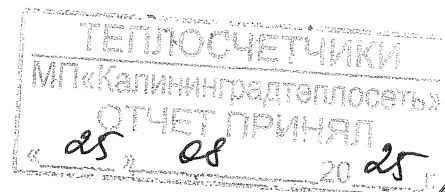 ТЕПЛОСЧЕТЧИКИ
МП«Калининградтеплосеть»
ОТЧЕТ ПРИНЯЛ
«25» 08 2025 г.